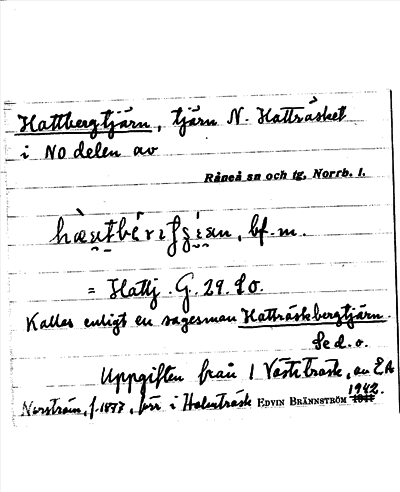 Hattbergtjärn, tjärn N. Hatträsket
i NO delen av
Råneå sn och tg, Norrb. l.
bf. m.
= Hattj. G. 29. SO.
Kallas enligt en sagesman Hatträskbergtjärn.
Se d. o.
Uppgiften från 1 Västibräsk, av EA
Norström, f. 1877, förr i Halmträsk EDVIN BRÄNNSTRÖM 1942.
1941